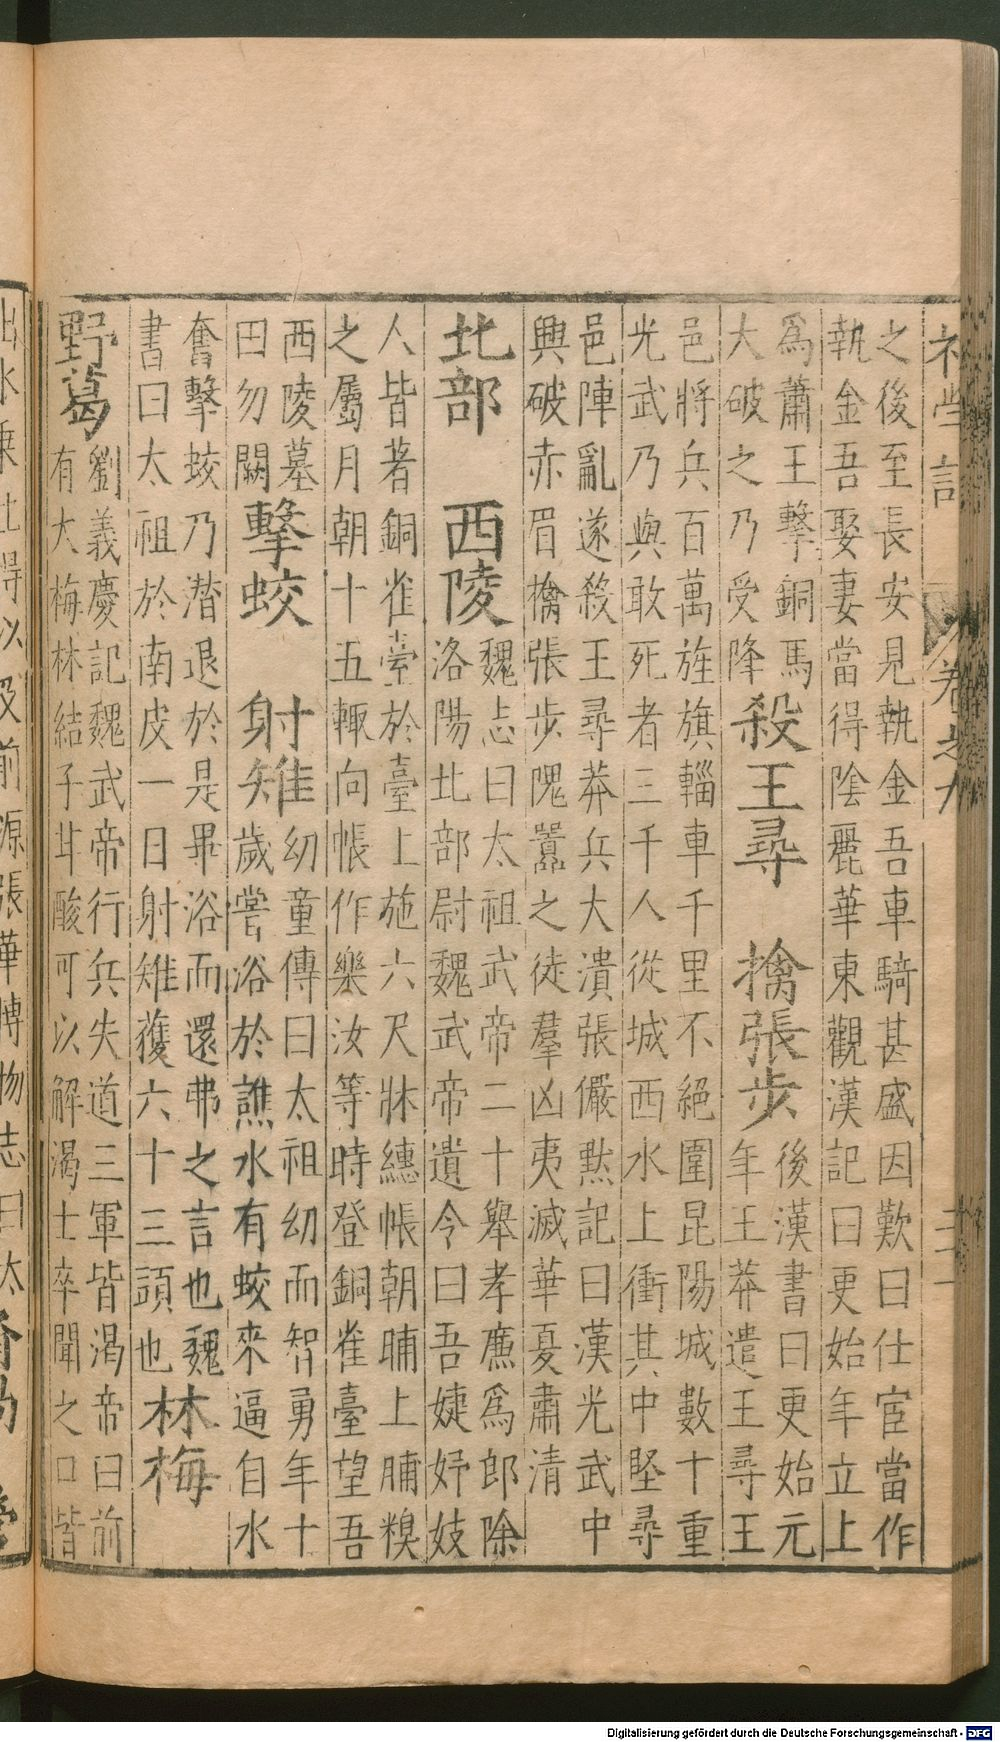 卷之九
之後至長安見執金吾車騎甚盛因歎曰仕宦當作
執金吾娶妻當得陰麗華東觀漢記曰更始年立上
為蕭王擊銅馬
大破之乃受降
殺王尋　擒張步
後漢書曰更始元
年王莽遣王尋王
邑將兵百萬旌旗輜車千里不絕圍昆陽城數十重
光武乃與敢死者三千人從城西水上衝其中堅尋
邑陣亂遂殺王尋莽兵大潰張儼默記曰漢光武中
興破赤眉擒張步隗囂之徒羣凶夷滅華夏肅清
北部　西陵
魏志曰太祖武帝二十舉孝廉為郎除
洛陽北部尉魏武帝遺令曰吾婕妤妓
人皆著銅雀臺於臺上施六尺牀繐帳朝晡上脯糗
之屬月朝十五輒向帳作樂汝等時登銅雀臺望吾
西陵墓
田勿闕
擊蛟　射雉
幼童傳曰太祖幼而智勇年十
歲嘗浴於譙水有蛟來逼自水
奮擊蛟乃潛退於是畢浴而還弗之言也魏
書曰太祖於南皮一日射雉獲六十三頭也
林梅
野葛
劉義慶記魏武帝行兵失道三軍皆渴帝曰前
有大梅林結子甘酸可以解渴士卒聞之口皆
出水乘此得以及前源張華博物志曰太
Digitalisierung gefördert durch die Deutsche Forschungsgemeinschaft - DFG